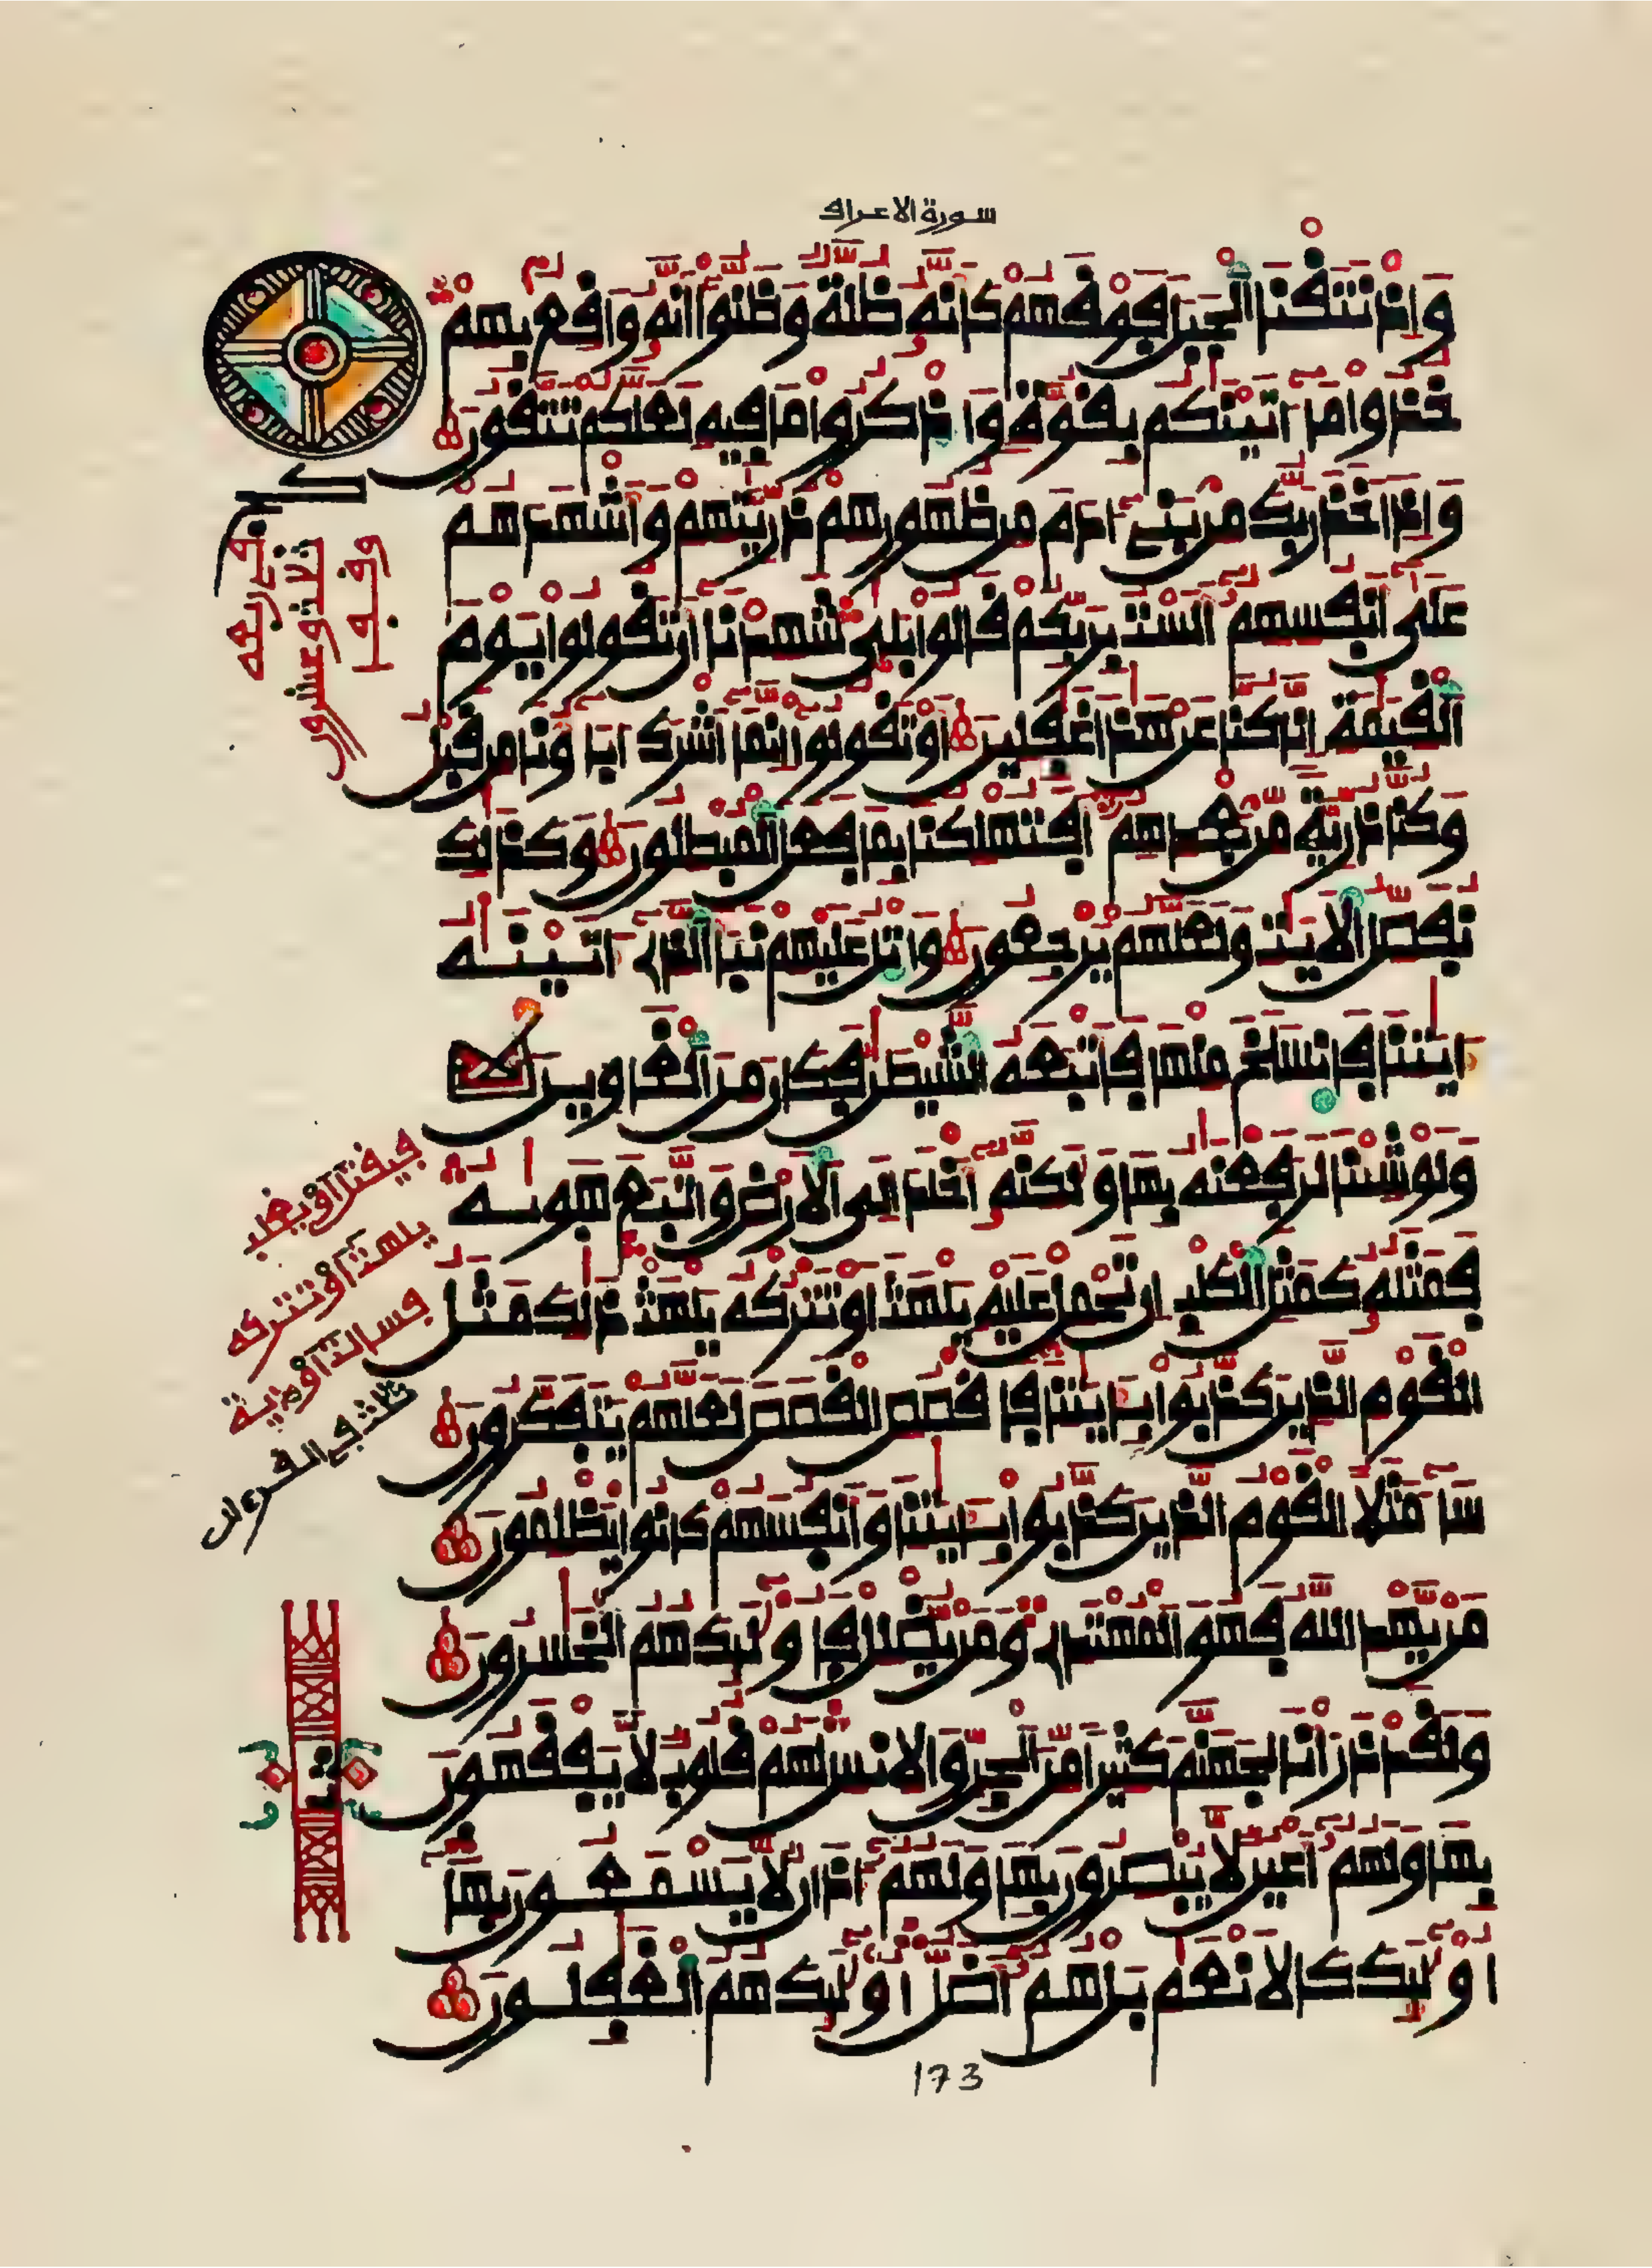 سورة الاعراف
وإذ نتقنا الجبل فوقهم كأنه ظلة وظنوا أنه واقع بهم
خذوا ما ءاتينكم بقوة واذكروا ما فيه لعلكم تتقون
وإذ أخذ ربك من بني ءادم من ظهورهم ذريتهم وأشهدهم
على أنفسهم ألست بربكم قالوا بلى شهدنا أن تقولوا يوم
القيمة إنا كنا عن هذا غفلين أو تقولوا إنما أشرك ءاباؤنا من قبل
وكنا ذرية من بعدهم أفتهلكنا بما فعل المبطلون وكذلك
نفصل الايت ولعلهم يرجعون واتل عليهم نبأ الذي ءاتينه
ءايتنا فانسلخ منها فأتبعه الشيطن فكان من الغاوين
ولو شئنا لرفعنه بها ولكنه أخلد إلى الارض واتبع هويه
فمثله كمثل الكلب إن تحمل عليه يلهث أو تتركه يلهث ذلك مثل
القوم الذين كذبوا بايتنا فاقصص القصص لعلهم يتفكرون
ساء مثلا القوم الذين كذبوا بايتنا وأنفسهم كانوا يظلمون
من يهد الله فهو المهتدي ومن يضلل فأولئك هم الخسرون
ولقد ذرأنا لجهنم كثيرا من الجن والانس لهم قلوب لا يفقهون
بها ولهم أعين لا يبصرون بها ولهم ءاذان لا يسمعون بها
أولئك كالانعم بل هم أضل أولئك هم الغفلون
173
وفيها
ثلاث وعشرون
فيقتل أو يغلب
يلهث أو تتركه
ثلث في القرءان
ثمن